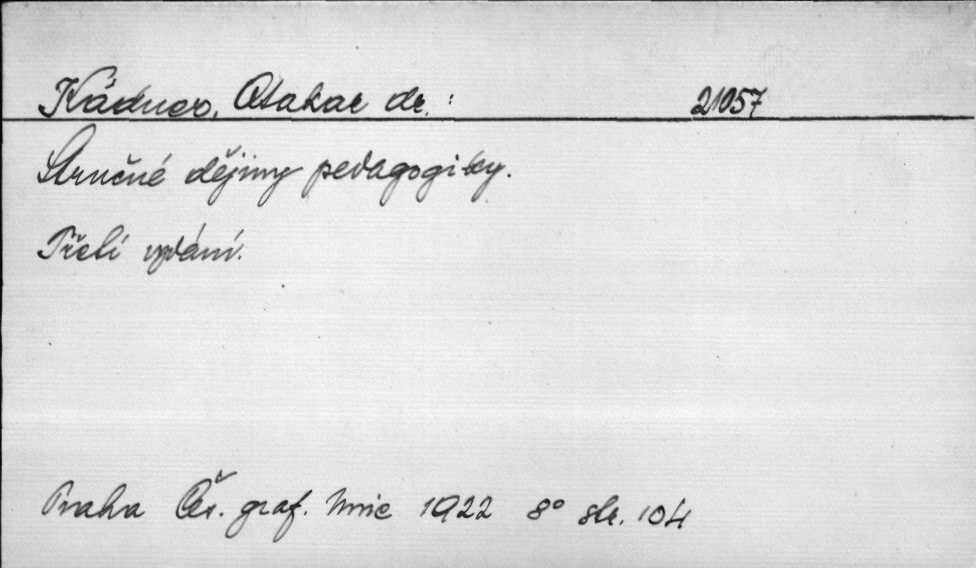 Kádner, Otakar dr.: 21057
Stručné dějiny pedagogiky.
Třetí vydání.
Praha Čes. graf. Unie 1922 8° str. 104